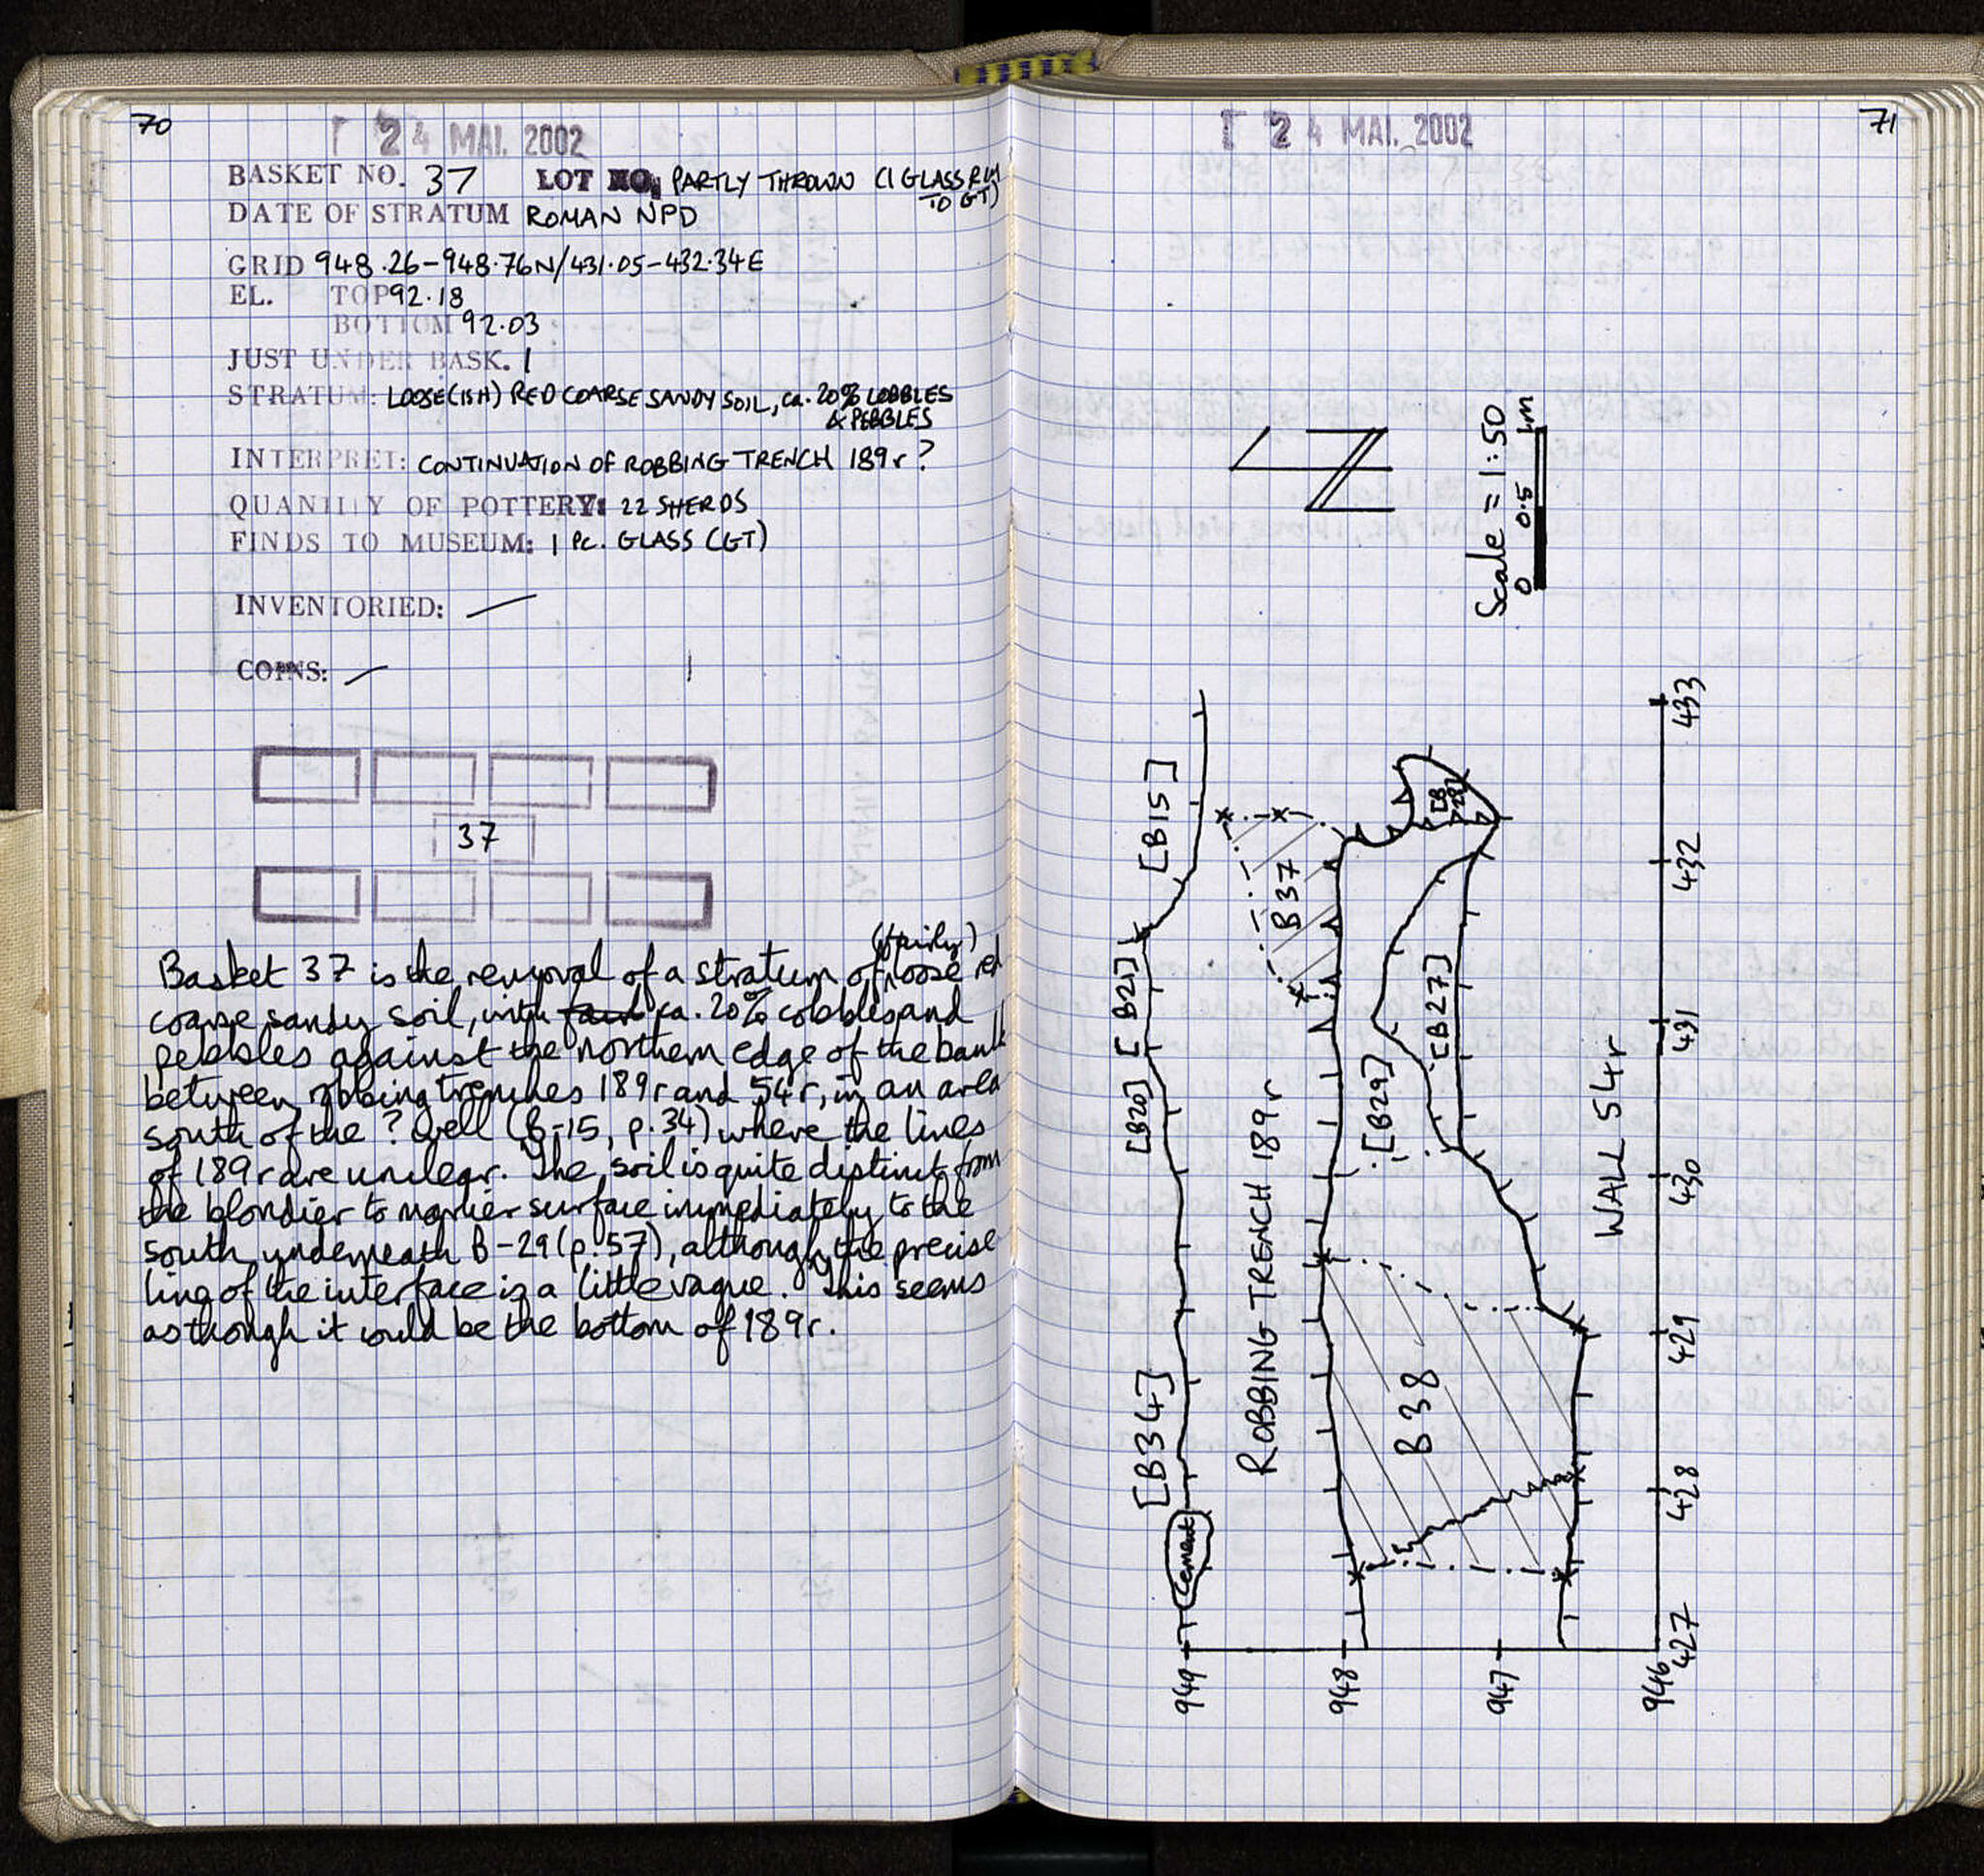 70
24 MAI. 2002
BASKET NO. 37 LOT NO. PARTLY THROWN (1 GLASS RIM
TO GT)
DATE OF STRATUM ROMAN NPD
GRID 948.26-948.76N/431.05-432.34E
EL. TOP 92.18
BOTTOM 92.03
JUST UNDER BASK. 1
STRATUM: LOOSE(ISH) RED COARSE SANDY SOIL, ca. 20% COBBLES
& PEBBLES
INTERPRET: CONTINUATION OF ROBBING TRENCH 189r?
QUANTITY OF POTTERY: 22 SHERDS
FINDS TO MUSEUM: 1 Pc. GLASS (GT)
INVENTORIED: —
COINS: —
37
(fairly)
Basket 37 is the removal of a stratum of loose red
coarse sandy soil, with ca. 20% cobbles and
pebbles against the northern edge of the bank
between robbing trenches 189r and 54r, in an area
south of the ? well (B-15, p.34) where the lines
of 189r are unclear. The soil is quite distinct from
the blondier to marlier surface immediately to the
south, underneath B-29 (p.57), although the precise
line of the interface is a little vague. This seems
as though it could be the bottom of 189r.
71
24 MAI. 2002
Scale = 1:50
0 0.5 1m
[B15]
[B21]
[B20]
[B34]
Cement
B37
ROBBING TRENCH 189r
[B29]
[B27]
[B
28]
B38
WALL 54r
433
432
431
430
429
428
427
949
948
947
946